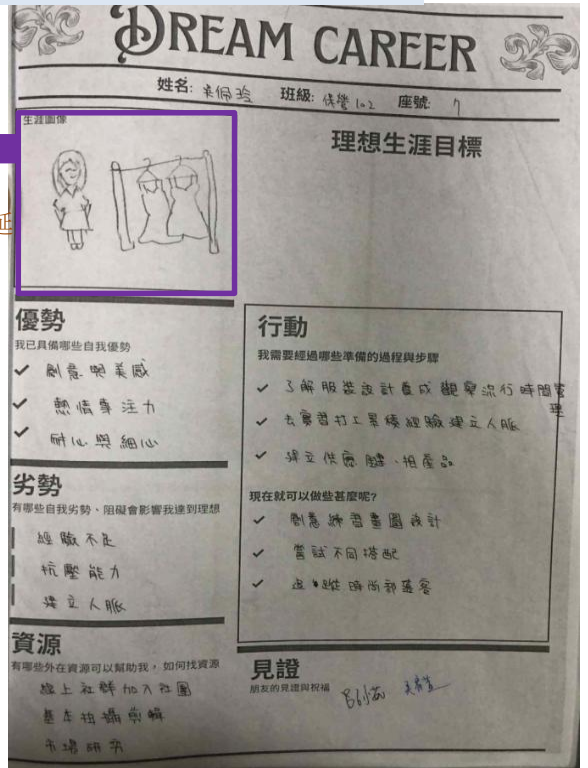 DREAM CAREER
姓名: 吳佩玲 班級: 保營102 座號: 7
生涯圖像
理想生涯目標
優勢
我已具備哪些自我優勢
創意與美感
熱情專注力
耐心與細心
劣勢
有哪些自我劣勢、阻礙會影響我達到理想
經驗不足
抗壓能力
建立人脈
資源
有哪些外在資源可以幫助我，如何找資源
線上社群加入社團
基本拍攝剪輯
市場研究
行動
我需要經過哪些準備的過程與步驟
了解服裝設計養成觀察流行時間管理
去實習打工累積經驗建立人脈
建立供應鏈、相產品
現在就可以做些甚麼呢?
創意練習畫圖設計
嘗試不同搭配
追蹤時尚部落客
見證
朋友的見證與祝福